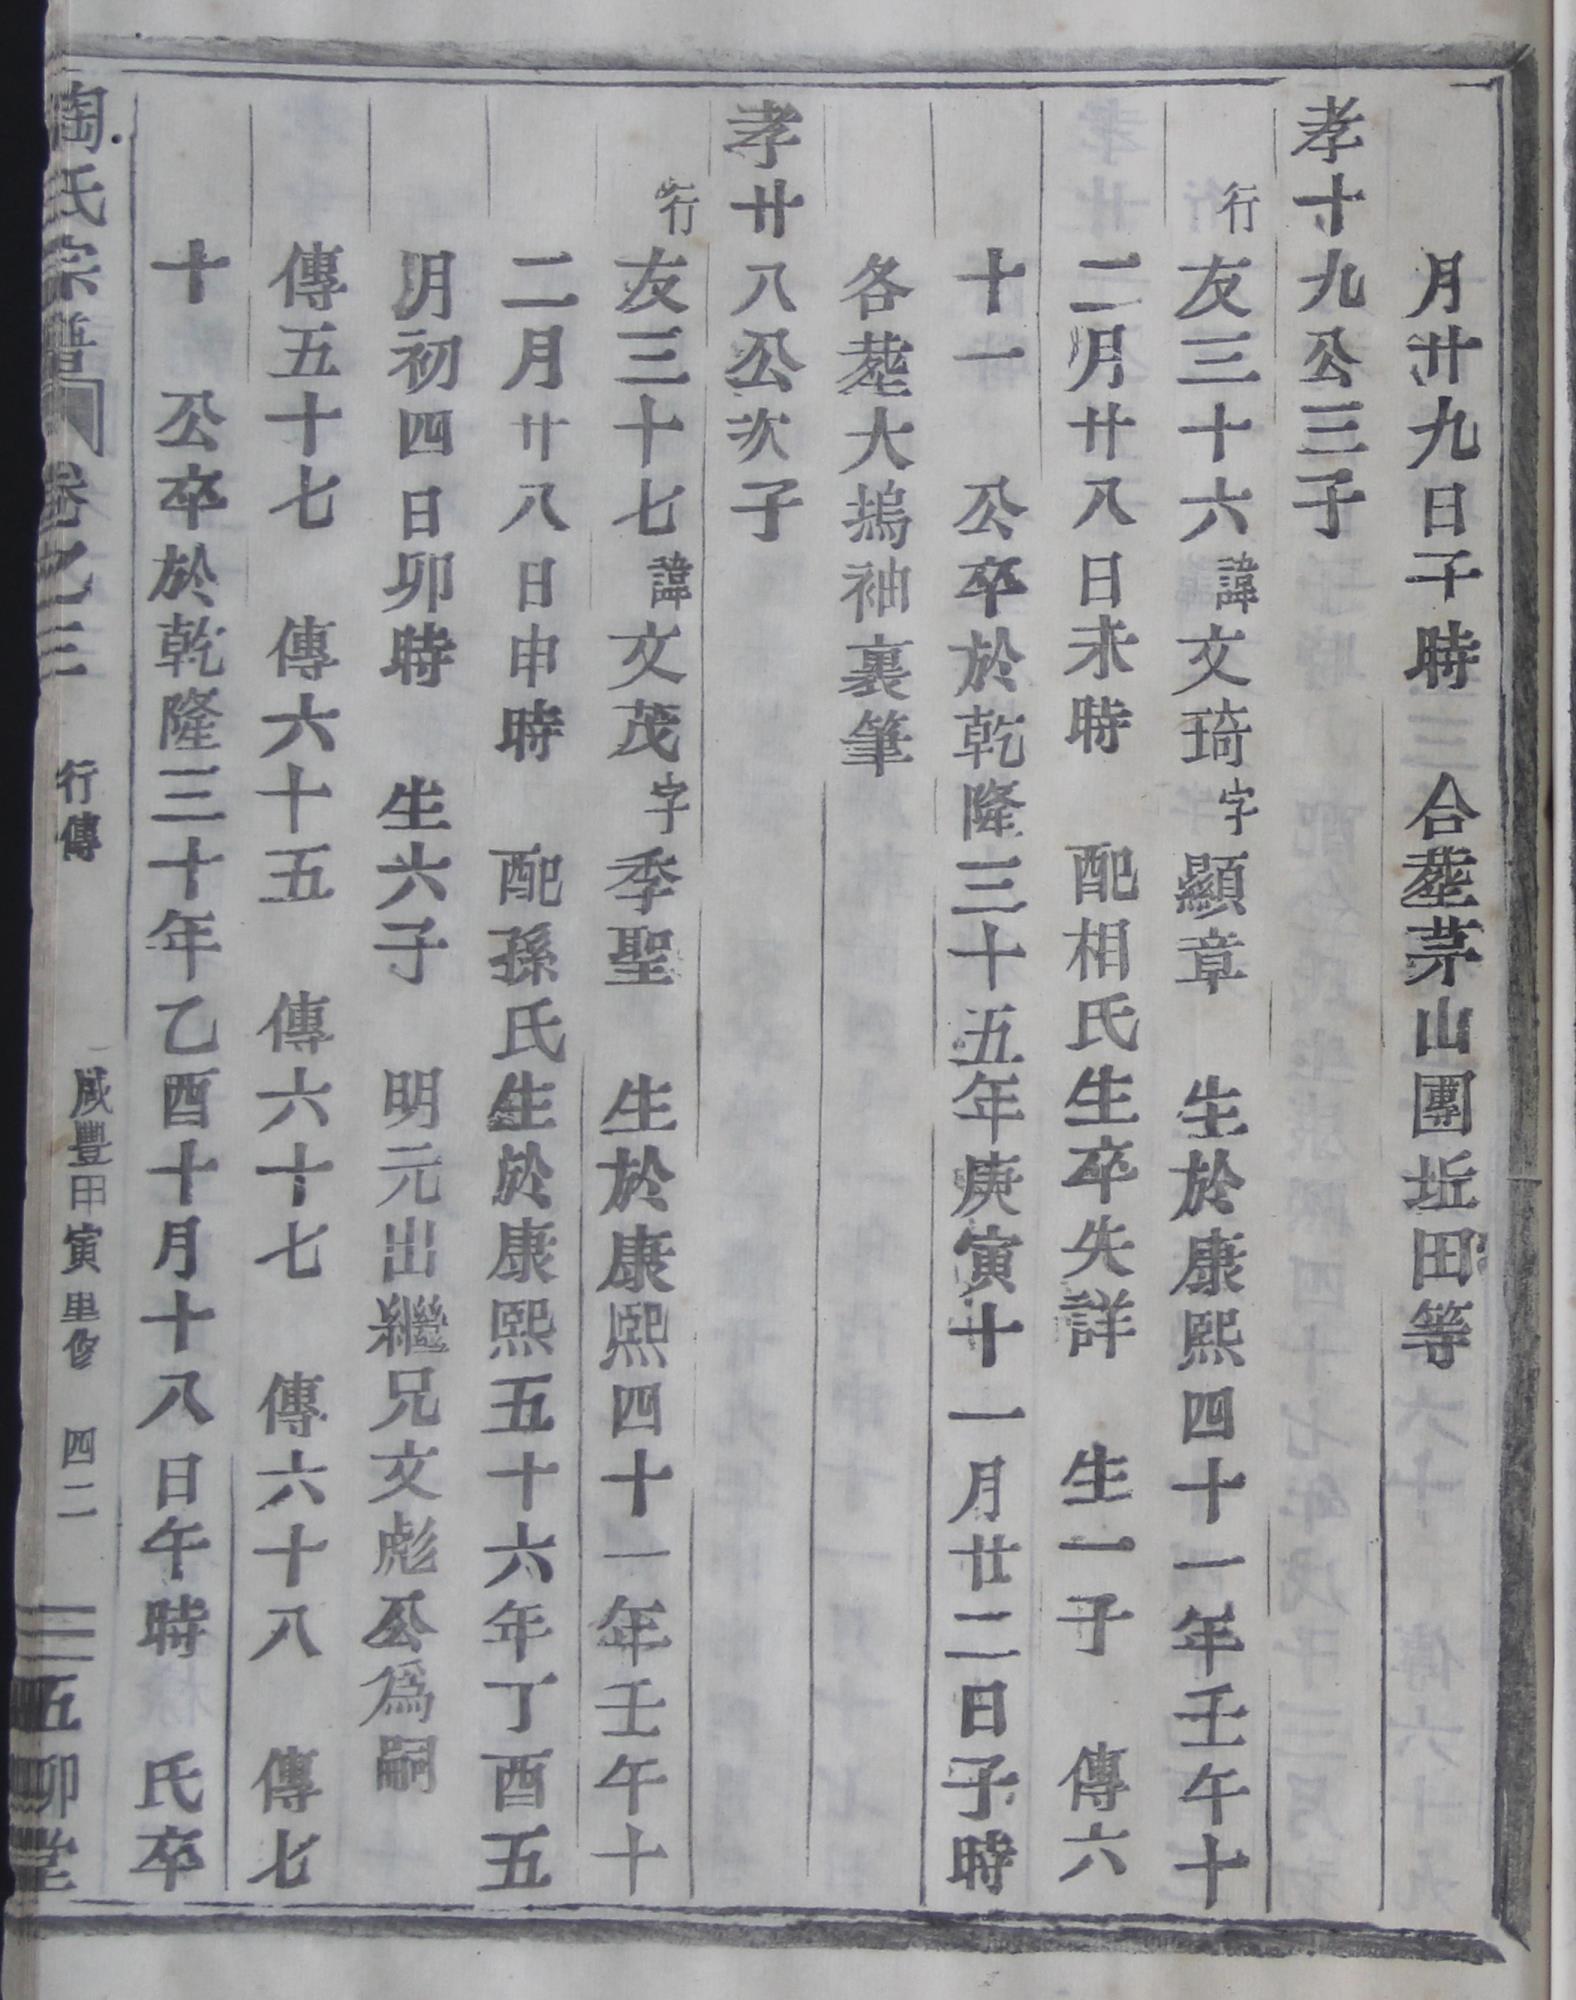 月廿九日子時　合塟茅山團坵田等
孝十九公三子
行友三十六諱文琦字顯章　生於康熙四十一年壬午十
二月廿八日未時　配相氏生卒失詳　生一子　傳六
十一　公卒於乾隆三十五年庚寅十一月廿二日子時
各塟大塢袖裏筆
孝廿八公次子
行友三十七諱文茂字季聖　生於康熙四十一年壬午十
二月廿八日申時　配孫氏生於康熙五十六年丁酉五
月初四日卯時　生六子　明元出繼兄文彪公爲嗣
傳五十七　傳六十五　傳六十七　傳六十八　傳七
十　公卒於乾隆三十年乙酉十月十八日午時　氏卒
陶氏宗譜　卷之三　行傳　咸豐甲寅重修　四二　五柳堂